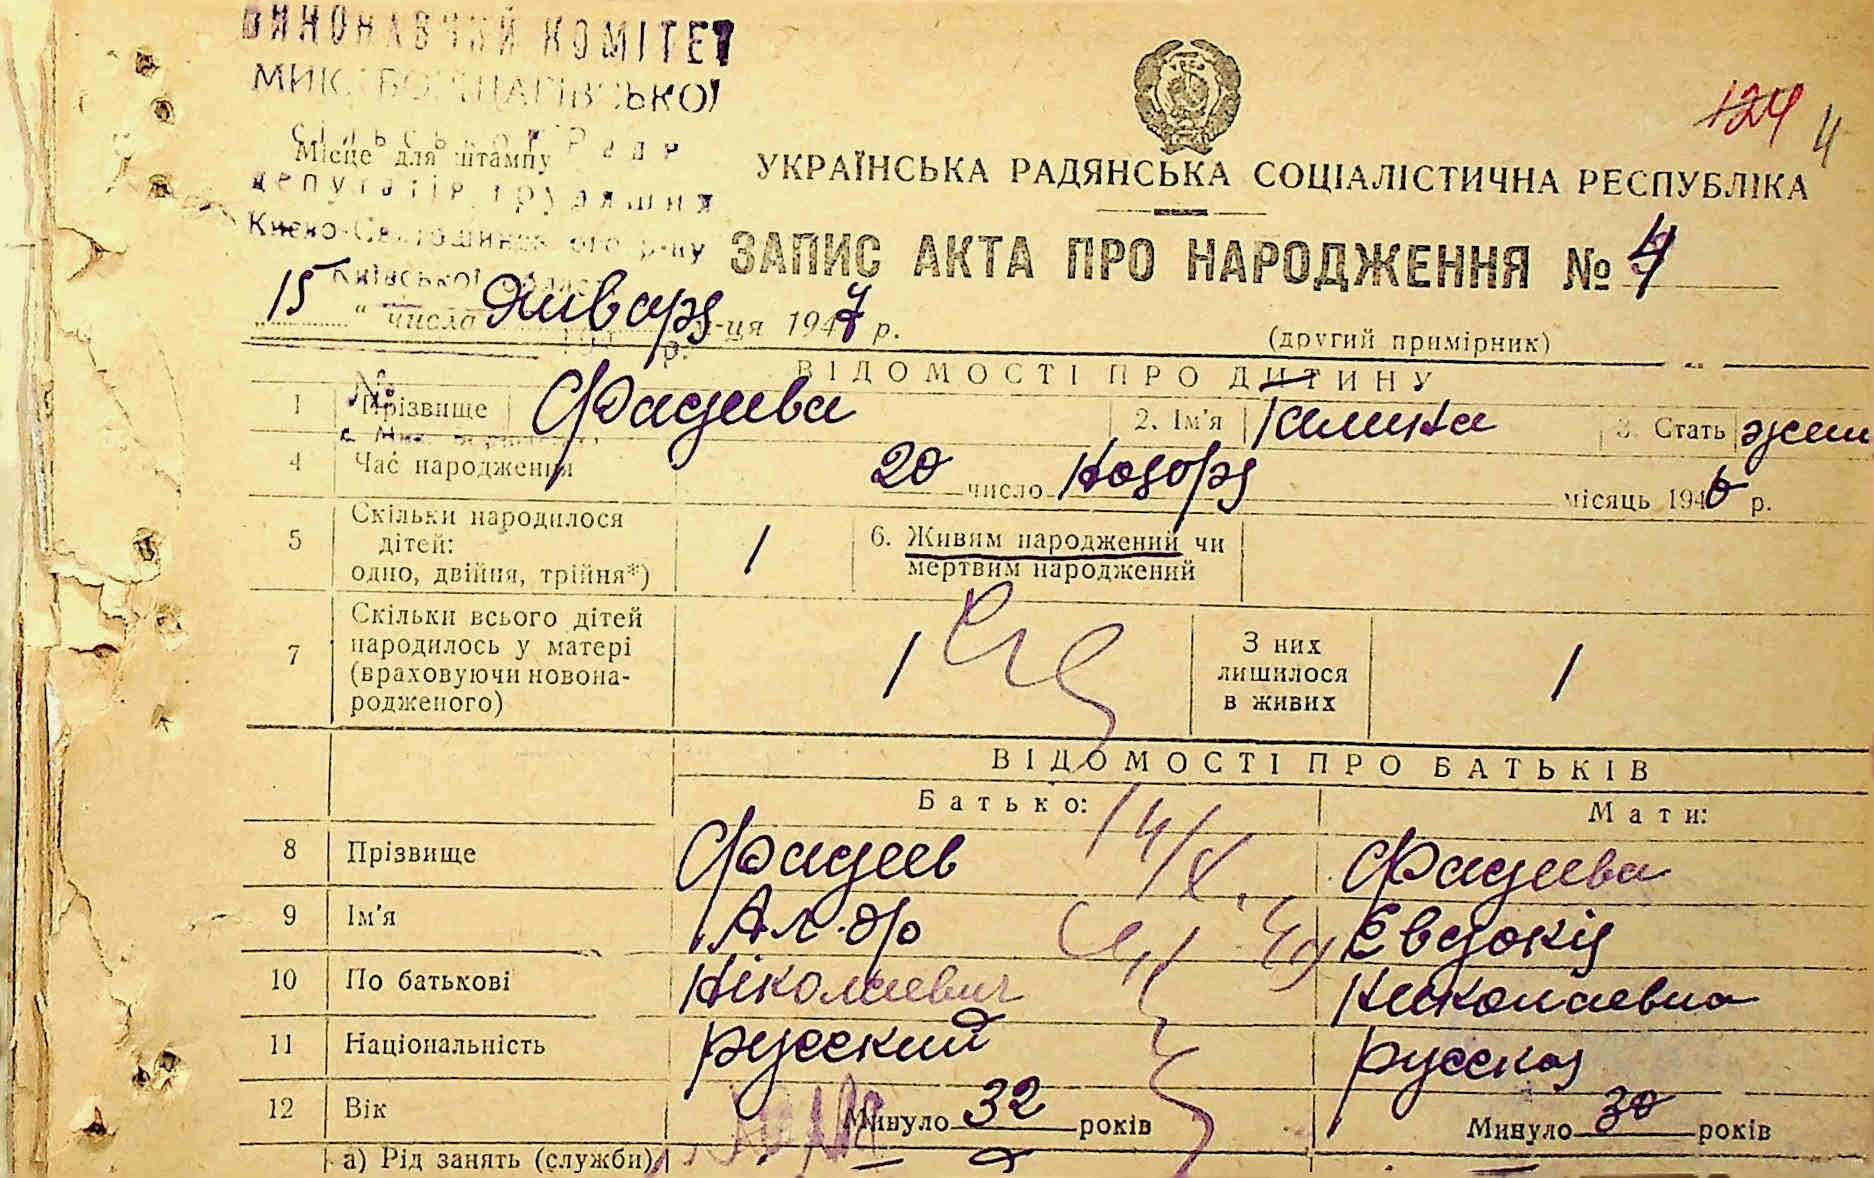 ВИКОНАВЧИЙ КОМІТЕТ
МИК. БОРЩАГІВСЬКОЇ
сільської Ради
Місце для штампу
депутатів трудящих
Києво-Святошинського р-ну
Київської області
124 4
УКРАЇНСЬКА РАДЯНСЬКА СОЦІАЛІСТИЧНА РЕСПУБЛІКА
ЗАПИС АКТА ПРО НАРОДЖЕННЯ № 4
15 " числа Январ м-ця 1947 р.
(другий примірник)
ВІДОМОСТІ ПРО ДИТИНУ
1 Прізвище Фадеева 2. Ім'я Галина 3. Стать жен
4 Час народження 20 число Ноября місяць 1946 р.
5 Скільки народилося дітей: одно, двійня, трійня*) 1 6. Живим народжений чи мертвим народжений
7 Скільки всього дітей народилось у матері (враховуючи новонародженого) 1 З них лишилося в живих 1
ВІДОМОСТІ ПРО БАТЬКІВ
Батько: Мати:
8 Прізвище Фадеев Фадеева
9 Ім'я Ал-др Евдокия
10 По батькові Ніколаевич Николаевна
11 Національність русский русская
12 Вік Минуло 32 років Минуло 30 років
а) Рід занять (служби)